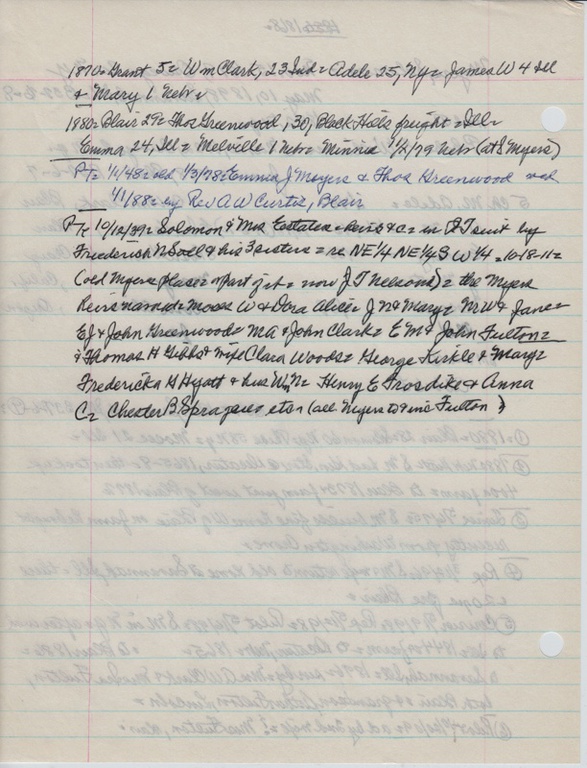 1870= Grant 5= Wm Clark, 23 Ind= Adele 25, NY= James W 4 Ill
& Mary 1 Nebr=
1880= Blair 27= Thos Greenwood, 30, Black Hills freight = Ill=
Emma 24, Ill= Melville 1 Nebr= Minnie 1/2/79 Nebr (at S Myers)
PT= 1/1/48= ad 1/3/78= Emma J Moyers & Thos Greenwood wed
1/1/88= by Rev A W Curtis, Blair
PT= 10/12/39= Solomon & Mrs Estates= heirs &c= in suit by
Frederick N Soll & his 3 sisters= re NE 1/4 NE 1/4 SW 1/4 = 10-18-11=
(old Myers place= part of it= now J T Nelsons)= the Myers
heirs named= Moses W & Dora Alice= J N & Mary= N W & Jane=
EJ & John Greenwood= MA & John Clark= E M & John Fulton=
& Thomas H Gibbs & wife Clara Woods= George Kirkle & Mary=
Fredericka H Hyatt & hus Wm N= Henry E Trosdike & Anna
C= Chester B Spragues, etc= (all Myers to & inc Fulton)